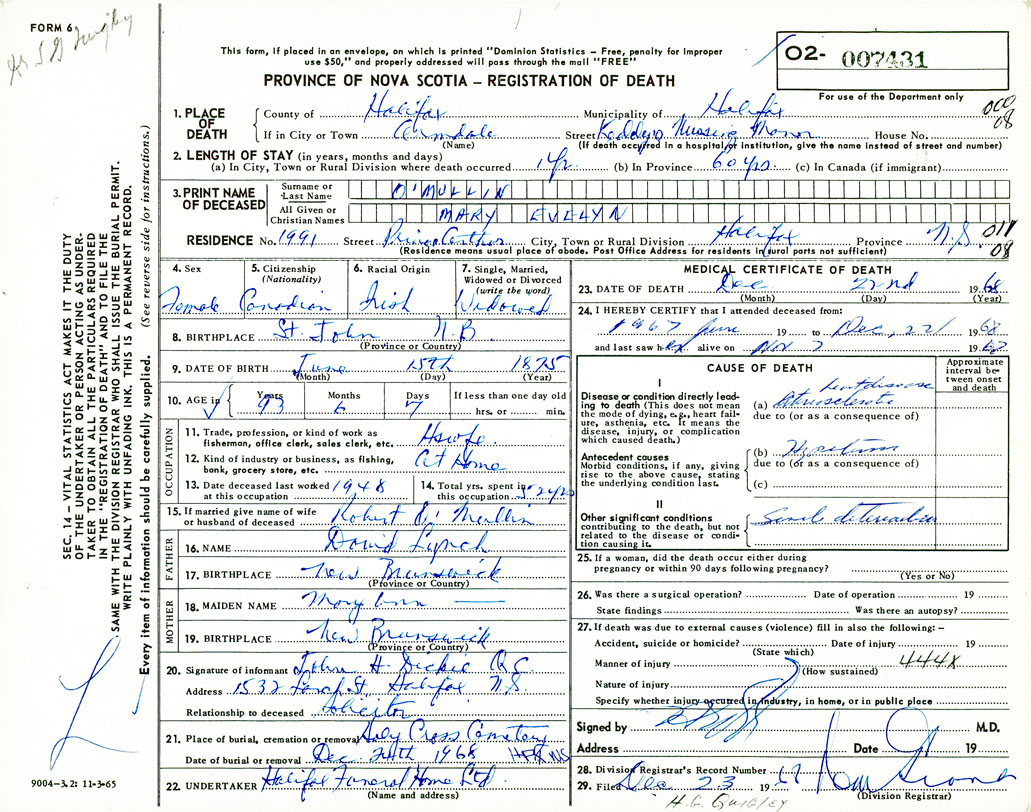 FORM 6
This form, if placed in an envelope, on which is printed "Dominion Statistics – Free, penalty for improper
use $50," and properly addressed will pass through the mail "FREE"
PROVINCE OF NOVA SCOTIA – REGISTRATION OF DEATH
O2- 007431
For use of the Department only
000
08
1. PLACE OF DEATH
County of Halifax Municipality of Halifax
If in City or Town Armdale Street Keddy's Nursing Manor House No.
(Name) (If death occurred in a hospital or institution, give the name instead of street and number)
2. LENGTH OF STAY (in years, months and days)
(a) In City, Town or Rural Division where death occurred 1 yr. (b) In Province 60 yrs. (c) In Canada (if immigrant)
3. PRINT NAME OF DECEASED
Surname or Last Name O'MULLIN
All Given or Christian Names MARY EVELYN
RESIDENCE No. 1991 Street Prince Arthur City, Town or Rural Division Halifax Province N.S.
011
08
(Residence means usual place of abode. Post Office Address for residents in rural parts not sufficient)
4. Sex
Female
5. Citizenship
(Nationality)
Canadian
6. Racial Origin
Irish
7. Single, Married,
Widowed or Divorced
(write the word)
Widowed
8. BIRTHPLACE St. John N.B
(Province or Country)
9. DATE OF BIRTH June 15th 1875
(Month) (Day) (Year)
10. AGE in Years Months Days If less than one day old
93 6 7 hrs. or min.
OCCUPATION
11. Trade, profession, or kind of work as
fisherman, office clerk, sales clerk, etc. Hswfe.
12. Kind of industry or business, as fishing,
bank, grocery store, etc. At Home
13. Date deceased last worked
at this occupation 1948
14. Total yrs. spent in
this occupation 52 yrs
15. If married give name of wife
or husband of deceased Robert O'Mullin
FATHER
16. NAME David Lynch
17. BIRTHPLACE New Brunswick
(Province or Country)
MOTHER
18. MAIDEN NAME Mary Ann —
19. BIRTHPLACE New Brunswick
(Province or Country)
20. Signature of informant John H. Dickie Q.C.
Address 1532 St. Halifax N.S.
Relationship to deceased Solicitor
21. Place of burial, cremation or removal Holy Cross Cemetery
Date of burial or removal Dec. 24th 1968 HFX N.S
22. UNDERTAKER Halifax Funeral Home Ltd.
(Name and address)
MEDICAL CERTIFICATE OF DEATH
23. DATE OF DEATH Dec 22nd 1968
(Month) (Day) (Year)
24. I HEREBY CERTIFY that I attended deceased from:
1967 June 19 to Dec, 22/ 1968
and last saw her alive on Nov 7 1968
CAUSE OF DEATH
Approximate
interval be-
tween onset
and death
I
Disease or condition directly lead-
ing to death (This does not
mean the mode of dying, e.g., heart fail-
ure, asthenia, etc. It means the
disease, injury, or complication
which caused death.)
(a) heart disease
due to (or as a consequence of)
Antecedent causes
Morbid conditions, if any, giving
rise to the above cause, stating
the underlying condition last.
(b)
due to (or as a consequence of)
(c)
II
Other significant conditions
contributing to the death, but not
related to the disease or condi-
tion causing it.
Senile deterioration
25. If a woman, did the death occur either during
pregnancy or within 90 days following pregnancy?
(Yes or No)
26. Was there a surgical operation? Date of operation 19
State findings Was there an autopsy?
27. If death was due to external causes (violence) fill in also the following: –
Accident, suicide or homicide? Date of injury 19
(State which)
Manner of injury 444X
(How sustained)
Nature of injury
Specify whether injury occurred in industry, in home, or in public place
Signed by M.D.
Address Date 19
28. Division Registrar's Record Number
29. Filed Dec 23 19
(Division Registrar)
H. G. QUIGLEY
SEC. 14 – VITAL STATISTICS ACT MAKES IT THE DUTY
OF THE UNDERTAKER OR PERSON ACTING AS UNDER-
TAKER TO OBTAIN ALL THE PARTICULARS REQUIRED
IN THE "REGISTRATION OF DEATH" AND TO FILE THE
SAME WITH THE DIVISION REGISTRAR WHO SHALL ISSUE THE BURIAL PERMIT.
WRITE PLAINLY WITH UNFADING INK. THIS IS A PERMANENT RECORD.
Every item of information should be carefully supplied. (See reverse side for instructions.)
9004–3.2: 11-3-65